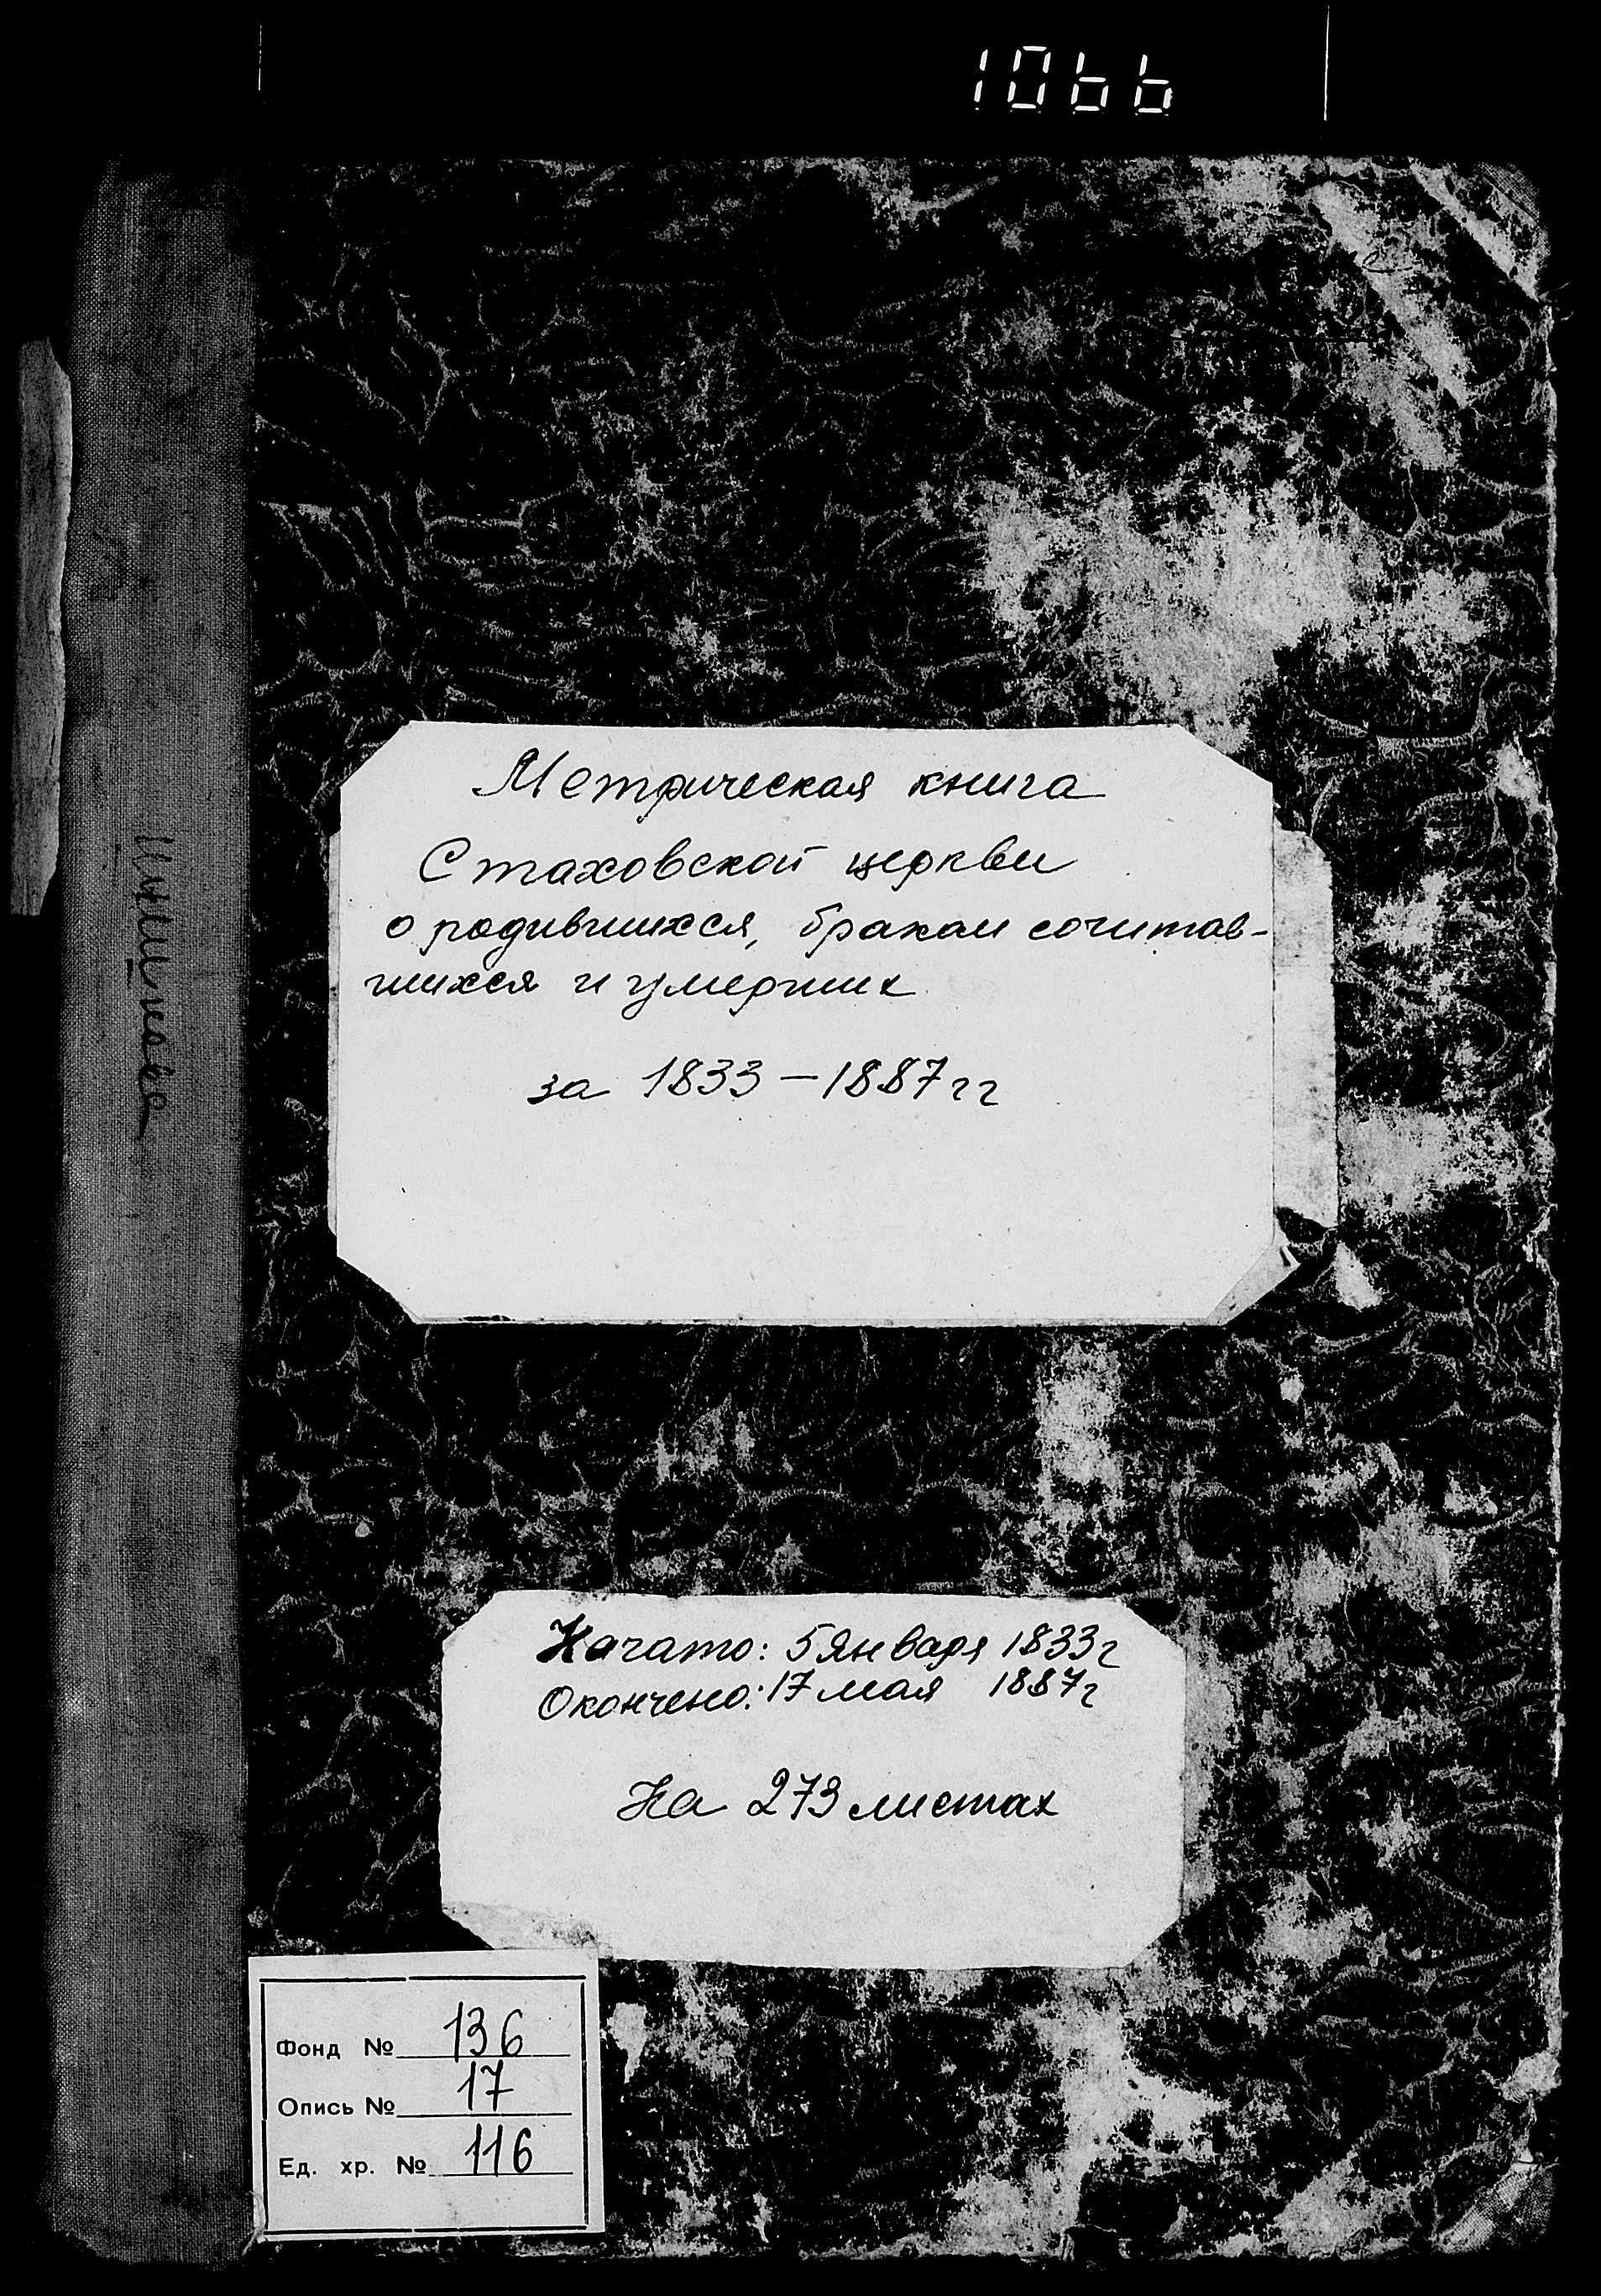 1066
Метрическая книга
Стаховской церкви
о родившихся, браком сочитав-
шихся и умерших
за 1833 – 1887 гг
Начато: 5 января 1833 г
Окончено: 17 мая 1887 г
На 273 листах
Фонд № 136
Опись № 17
Ед. хр. № 116